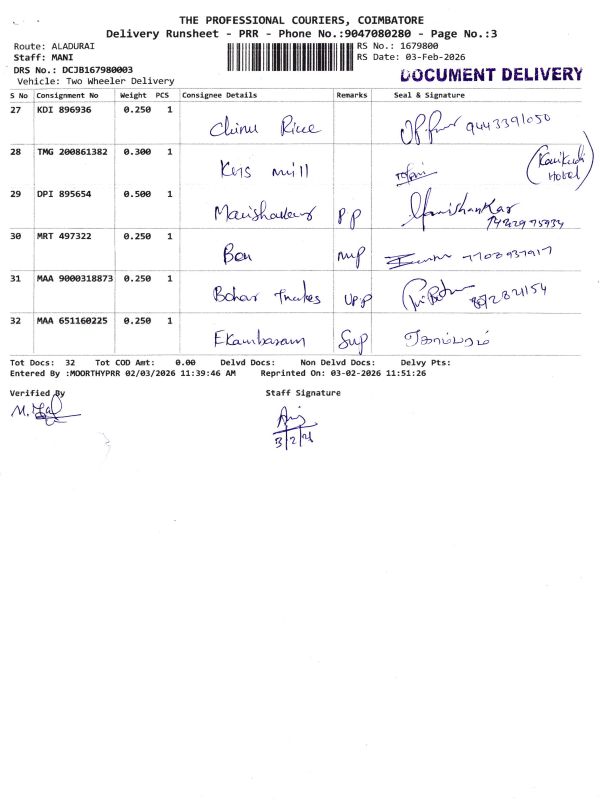 THE PROFESSIONAL COURIERS, COIMBATORE
Delivery Runsheet - PRR - Phone No.:9047080280 - Page No.:3
Route: ALADURAI
RS No.: 1679800
Staff: MANI
RS Date: 03-Feb-2026
DRS No.: DCJB167980003
DOCUMENT DELIVERY
Vehicle: Two Wheeler Delivery
S No Consignment No Weight PCS Consignee Details Remarks Seal & Signature
27 KDI 896936 0.250 1 Chinu Rice 9443391050
28 TMG 200861382 0.300 1 Kns mill
Hotel
29 DPI 895654 0.500 1 PP
30 MRT 497322 0.250 1 Ben mp
31 MAA 9000318873 0.250 1
32 MAA 651160225 0.250 1 Ekambaram Sup ஏகாம்பரம்
Tot Docs: 32 Tot COD Amt: 0.00 Delvd Docs: Non Delvd Docs: Delvy Pts:
Entered By :MOORTHYPRR 02/03/2026 11:39:46 AM Reprinted On: 03-02-2026 11:51:26
Verified By Staff Signature
3/2/26